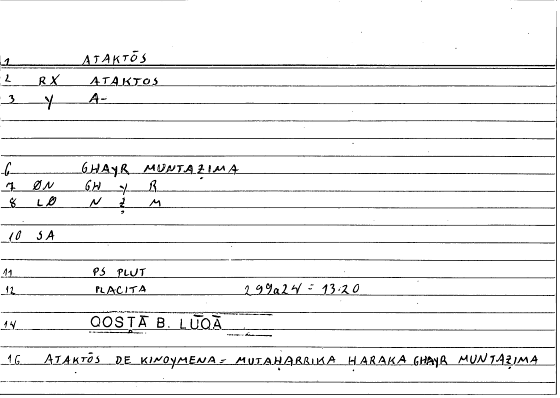 1 ATAKTŌS
2 RX ATAKTOS
3 y A-
6 GHAyR MUNTAẒIMA
7 ØN GH y R
8 LØ N Ẓ M
10 SA
11 PS PLUT
12 PLACITA 299a24 = 13.20
14 QOSṬĀ B. LŪQĀ
16 ATAKTŌS DE KINOYMENA = MUTAḤARRIKA ḤARAKA GHAYR MUNTAẒIMA